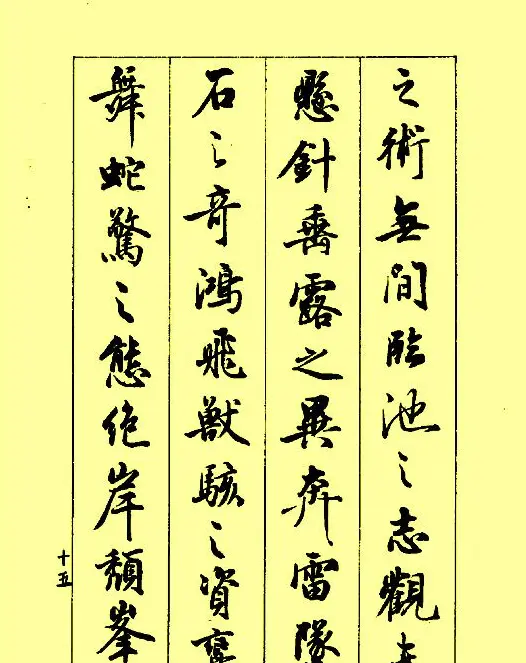 之術無間臨池之志觀夫
懸針垂露之異奔雷墜
石之奇鴻飛獸駭之資鸞
舞蛇驚之態絕岸頹峯
十五